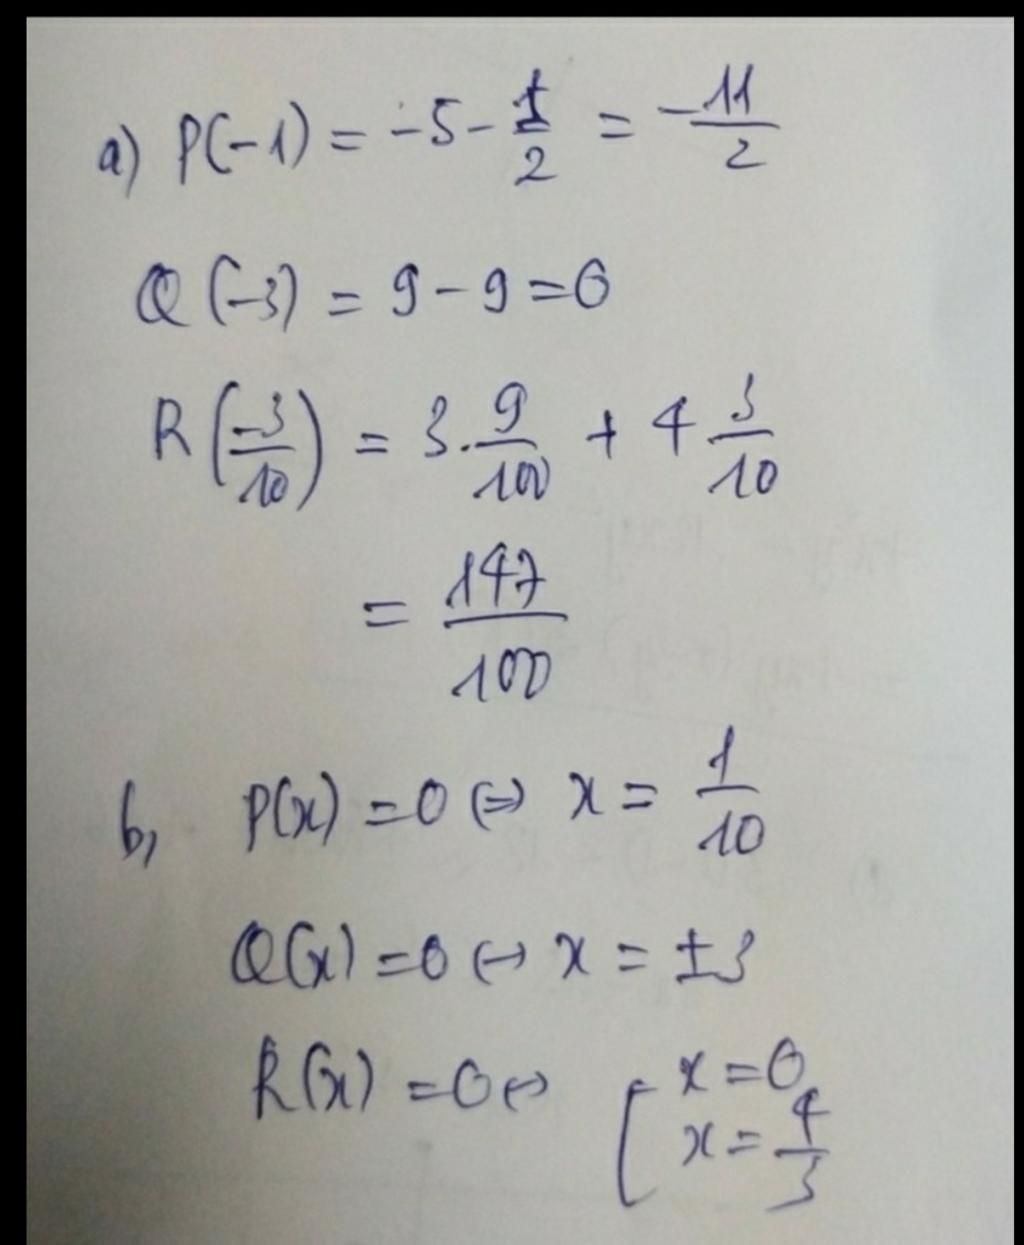 a) P(-1) = -5 - 1/2 = -11/2
Q(-3) = 9 - 9 = 0
R(-3/10) = 3 . 9/100 + 4 3/10
= 147/100
b, P(x) = 0 ⇔ x = 1/10
Q(x) = 0 ↔ x = ±3
R(x) = 0 ↔ [ x = 0
x = 4/3